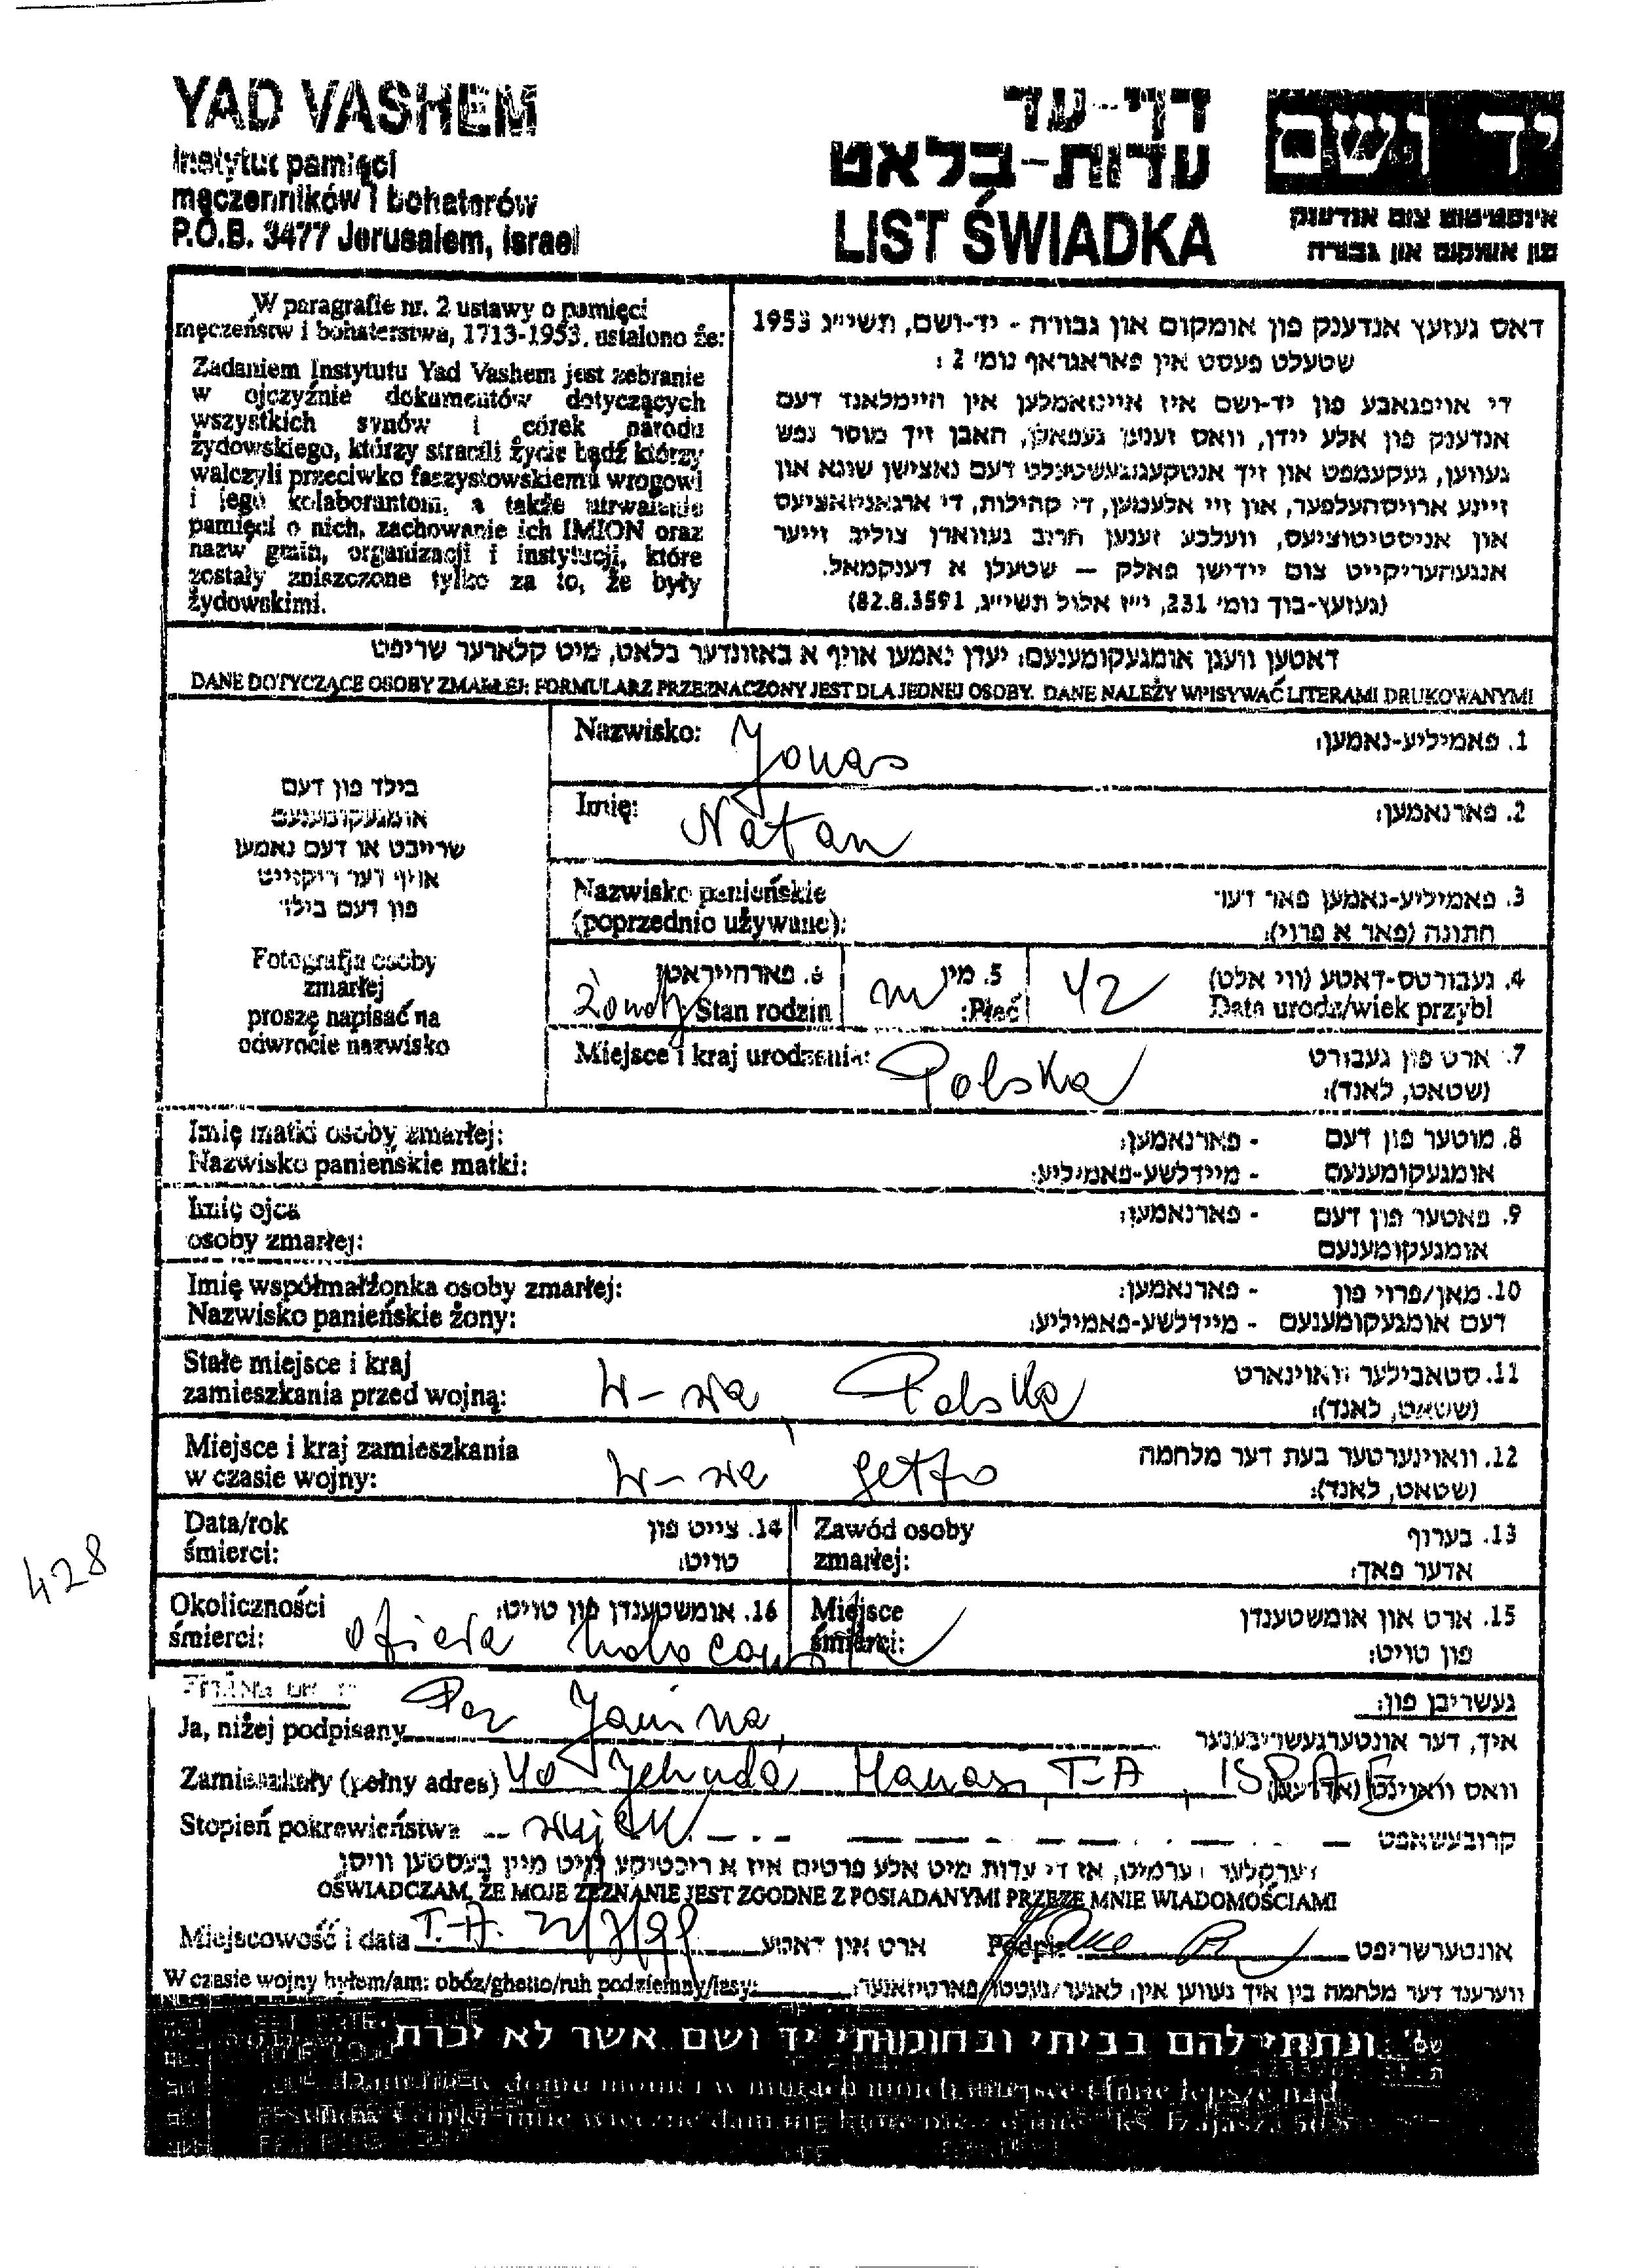 YAD VASHEM
Instytut pamięci
męczenników i bohaterów
P.O.B. 3477 Jerusalem, Israel
דף-עד
עדות-בלאט
LIST ŚWIADKA
יד ושם
אינסטיטוט צום אנדענק
פון אומקום און גבורה
W paragrafie nr. 2 ustawy o pamięci
męczeństw i bohaterstwa, 1713-1953, ustalono że:
Zadaniem Instytutu Yad Vashem jest zebranie
w ojczyźnie dokumentów dotyczących
wszystkich synów i córek narodu
żydowskiego, którzy stracili życie bądź którzy
walczyli przeciwko faszystowskiemu wrogowi
i jego kolaborantom, a także utrwalenie
pamięci o nich, zachowanie ich IMION oraz
nazw gmin, organizacji i instytucji, które
zostały zniszczone tylko za to, że były
żydowskimi.
דאס געזעץ אנדענק פון אומקום און גבורה - יד-ושם, תשי״ג 1953
שטעלט פעסט אין פאראגראף נומ׳ 2 :
די אויפגאבע פון יד-ושם איז איינזאמלען אין היימלאנד דעם
אנדענק פון אלע יידן, וואס זענען געפאלן, האבן זיך מוסר נפש
געווען, געקעמפט און זיך אנטקעגנגעשטעלט דעם נאצישן שונא און
זיינע ארויסהעלפער, און זיי אלעמען, די קהילות, די ארגאניזאציעס
און אניסטיטוציעס, וועלכע זענען חרוב געווארן צוליב זייער
אנגעהעריקייט צום יידישן פאלק – שטעלן א דענקמאל.
(געזעץ-בוך נומ׳ 231, י״ז אלול תשי״ג, 82.8.3591)
דאטען וועגן אומגעקומענעם: יעדן נאמען אויף א באזונדער בלאט, מיט קלארער שריפט
DANE DOTYCZĄCE OSOBY ZMARŁEJ: FORMULARZ PRZEZNACZONY JEST DLA JEDNEJ OSOBY. DANE NALEŻY WPISYWAĆ LITERAMI DRUKOWANYMI
בילד פון דעם
אומגעקומענעם
שרייבט או דעם נאמען
אויף דער ריקזייט
פון דעם בילד
Fotografja osoby
zmarłej
proszę napisać na
odwrocie nazwisko
Nazwisko: Jonas 1. פאמיליע-נאמען:
Imię: Natan 2. פארנאמען:
Nazwisko panieńskie 3. פאמיליע-נאמען פאר דער
(poprzednio używane): חתונה (פאר א פרוי):
6. פארהייראטן 5. מין 4. געבורטס-דאטע (ווי אלט)
Żonaty Stan rodzin m Płeć: 42 Data urodz/wiek przybl
Miejsce i kraj urodzenia: Polska 7. ארט פון געבורט
(שטאט, לאנד):
Imię matki osoby zmarłej: - פארנאמען: 8. מוטער פון דעם
Nazwisko panieńskie matki: - מיידלשע-פאמיליע: אומגעקומענעם
Imię ojca - פארנאמען: 9. פאטער פון דעם
osoby zmarłej: אומגעקומענעם
Imię współmałżonka osoby zmarłej: - פארנאמען: 10. מאן/פרוי פון
Nazwisko panieńskie żony: - מיידלשע-פאמיליע: דעם אומגעקומענעם
Stałe miejsce i kraj 11. סטאבילער וואוינארט
zamieszkania przed wojną: W-wa, Polska (שטאט, לאנד):
Miejsce i kraj zamieszkania 12. וואוינערטער בעת דער מלחמה
w czasie wojny: W-wa getto (שטאט, לאנד):
Data/rok 14. צייט פון Zawód osoby 13. בערוף
śmierci: טויט: zmarłej: אדער פאך:
428
Okoliczności 16. אומשטענדן פון טויט: Miejsce 15. ארט און אומשטענדן
śmierci: ofiara śmierci: פון טויט:
געשריבן פון:
Ja, niżej podpisany Per Janina, איך, דער אונטערגעשריבענער
Zamieszkały (pełny adres) 40 Jehuda T-A, ISRAEL וואס וואוינט (אדרעס)
Stopień pokrewieństwa wujek קרובעשאפט
דערקלער דערמיט, אז די עדות מיט אלע פרטים איז א ריכטיקע מיט מיין בעסטען וויסן
OŚWIADCZAM, ŻE MOJE ZEZNANIE JEST ZGODNE Z POSIADANYMI PRZEZE MNIE WIADOMOŚCIAMI
Miejscowość i data T.-A. ארט און דאטע Podpis אונטערשריפט
W czasie wojny byłem/am: obóz/ghetto/ruh podziemny/lasy: ווערענד דער מלחמה בין איך געווען אין: לאגער/געטא/פארטיזאנער:
ונתתי להם בביתי ובחומותי יד ושם אשר לא יכרת